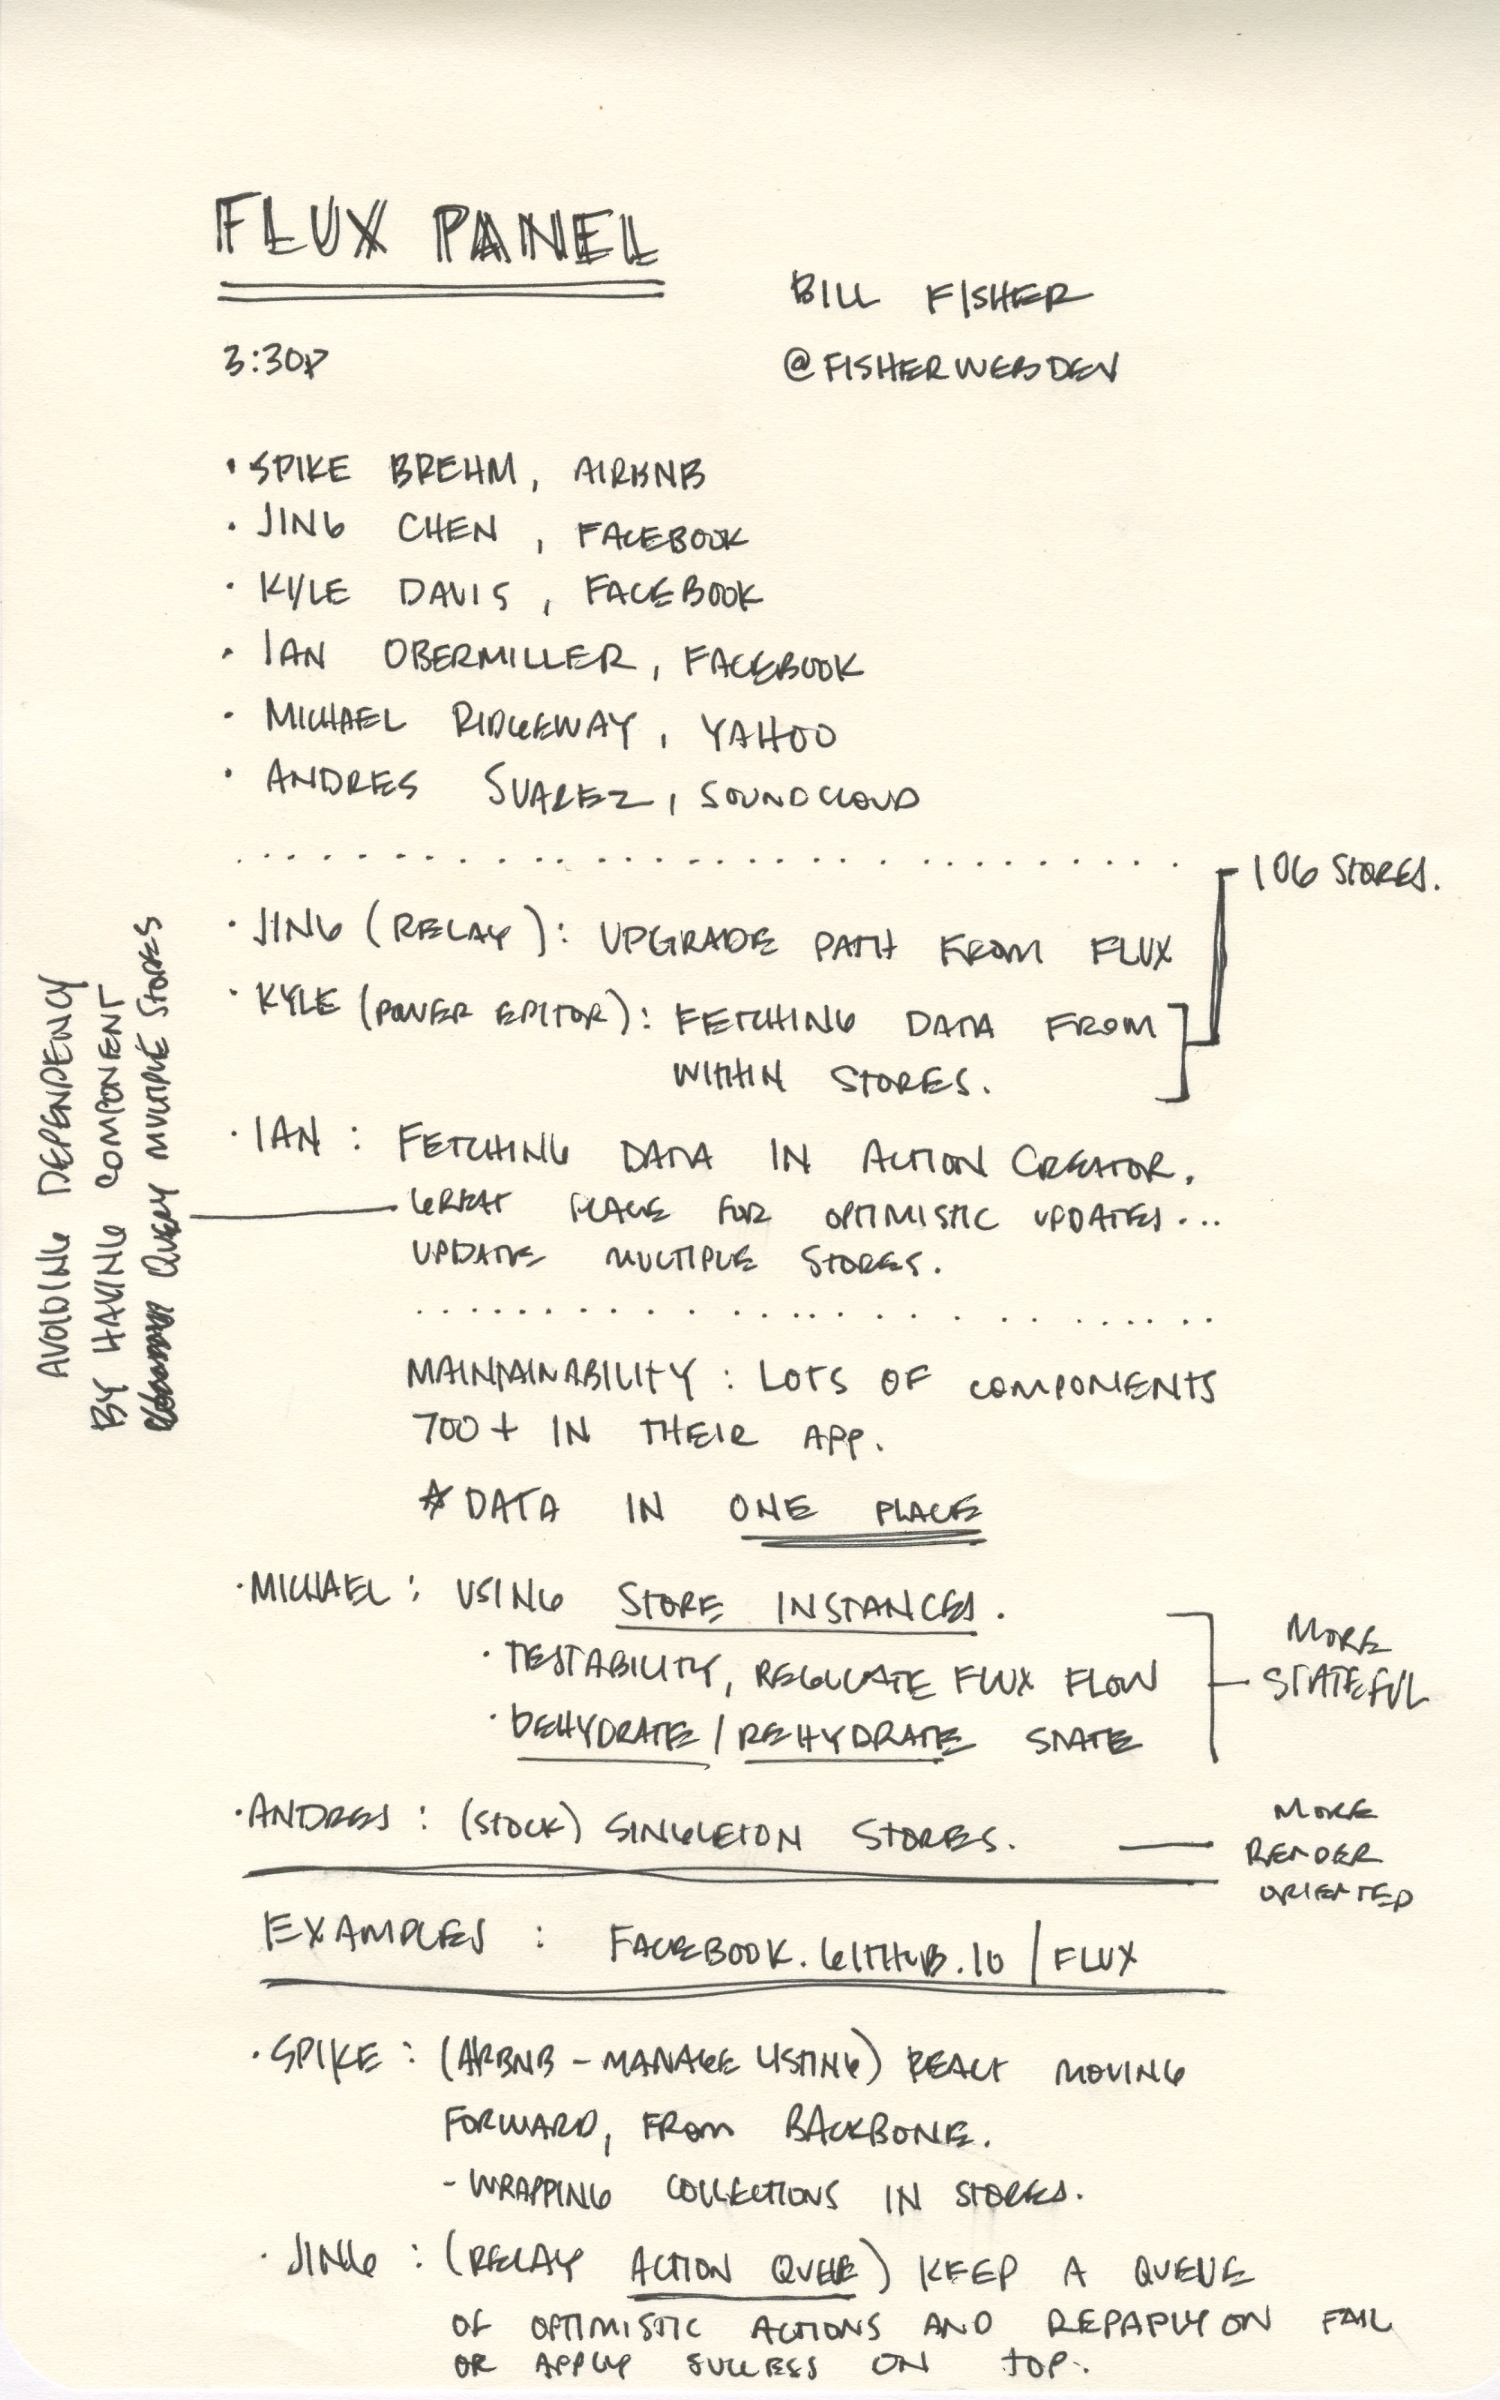 FLUX PANEL
BILL FISHER
3:30P
@FISHERWEBDEV
• SPIKE BREHM, AIRBNB
• JING CHEN, FACEBOOK
• KYLE DAVIS, FACEBOOK
• IAN OBERMILLER, FACEBOOK
• MICHAEL RIDGEWAY, YAHOO
• ANDRES SUAREZ, SOUNDCLOUD
106 STORES.
• JING (RELAY): UPGRADE PATH FROM FLUX
• KYLE (POWER EDITOR): FETCHING DATA FROM
WITHIN STORES.
• IAN: FETCHING DATA IN ACTION CREATOR.
GREAT PLACE FOR OPTIMISTIC UPDATES...
UPDATE MULTIPLE STORES.
AVOIDING DEPENDENCY
BY HAVING COMPONENT
QUERY MULTIPLE STORES
MAINTAINABILITY: LOTS OF COMPONENTS
700+ IN THEIR APP.
* DATA IN ONE PLACE
• MICHAEL: USING STORE INSTANCES.
• TESTABILITY, REGULATE FLUX FLOW
• DEHYDRATE/REHYDRATE STATE
MORE
STATEFUL
• ANDRES: (STOCK) SINGLETON STORES.
MORE
RENDER
ORIENTED
EXAMPLES: FACEBOOK.GITHUB.IO/FLUX
• SPIKE: (AIRBNB - MANAGE LISTING) REACT MOVING
FORWARD, FROM BACKBONE.
- WRAPPING COLLECTIONS IN STORES.
• JING: (RELAY ACTION QUEUE) KEEP A QUEUE
OF OPTIMISTIC ACTIONS AND REPAPLY ON FAIL
OR APPLY SUCCESS ON TOP.